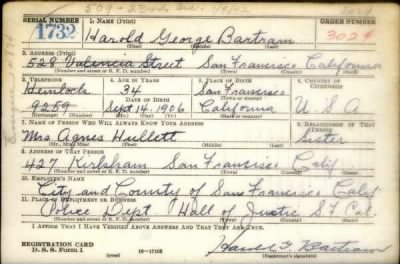 509 - 23rd Ave.
SERIAL NUMBER 1. NAME (Print) ORDER NUMBER
1732 Harold George Bartram 3024
(First) (Middle) (Last)
2. ADDRESS (Print)
528 Valencia Street San Francisco California
(Number and street or R. F. D. number) (Town) (County) (State)
3. TELEPHONE 4. AGE IN YEARS 5. PLACE OF BIRTH 6. COUNTRY OF CITIZENSHIP
Hemlock 34 San Francisco
DATE OF BIRTH
9259 Sept 14, 1906 California U. S. A.
(Exchange) (Number) (Mo.) (Day) (Yr.) (State or country)
7. NAME OF PERSON WHO WILL ALWAYS KNOW YOUR ADDRESS 8. RELATIONSHIP OF THAT PERSON
Mrs. Agnes Hullett Sister
(Mr., Mrs., Miss) (First) (Middle) (Last)
9. ADDRESS OF THAT PERSON
427 San Francisco Calif
(Number and street or R. F. D. number) (Town) (County) (State)
10. EMPLOYER'S NAME
City and County of San Francisco Calif
11. PLACE OF EMPLOYMENT OR BUSINESS
Police Dept Hall of Justic S F Cal.
(Number and street or R. F. D. number) (Town) (County) (State)
I AFFIRM THAT I HAVE VERIFIED ABOVE ANSWERS AND THAT THEY ARE TRUE.
REGISTRATION CARD
D. S. S. Form 1 16-17105 Harold G Bartram
(Registrant's signature)